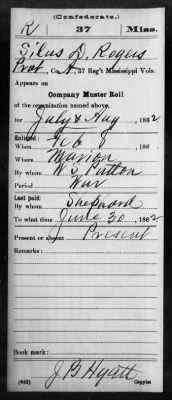 (Confederate.)
R 37 Miss.
Silas D. Rogers
Pvt, Co. A, 37 Reg't Mississippi Vols.
Appears on
Company Muster Roll
of the organization named above,
for July & Aug, 1862
Enlisted:
When Feb 8, 186
Where Marion
By whom W. S. Patton
Period War
Last paid:
By whom Sheppard
To what time June 30, 1862
Present or absent Present
Remarks:
Book mark:
J B Hyatt
(642) Copyist.